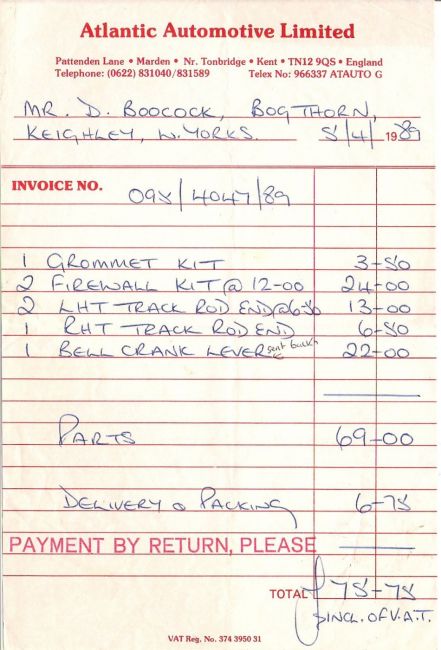 Atlantic Automotive Limited
Pattenden Lane • Marden • Nr. Tonbridge • Kent • TN12 9QS • England
Telephone: (0622) 831040/831589 Telex No: 966337 ATAUTO G
MR. D. BOOCOCK, BOGTHORN,
KEIGHLEY, W. YORKS. 5/4/1989
INVOICE NO. 095/4047/89
1 GROMMET KIT 3-50
2 FIREWALL KIT @ 12-00 24-00
2 LHT TRACK ROD END @ 6-50 13-00
1 RHT TRACK ROD END 6-50
1 BELL CRANK LEVER sent back 22-00
PARTS 69-00
DELIVERY & PACKING 6-75
PAYMENT BY RETURN, PLEASE
TOTAL £75-75
INCL. OF V.A.T.
VAT Reg. No. 374 3950 31